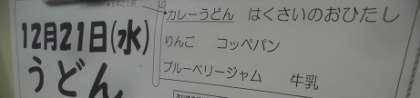 12月21日(水)
うどん
・カレーうどん はくさいのおひたし
りんご コッペパン
ブルーベリージャム 牛乳